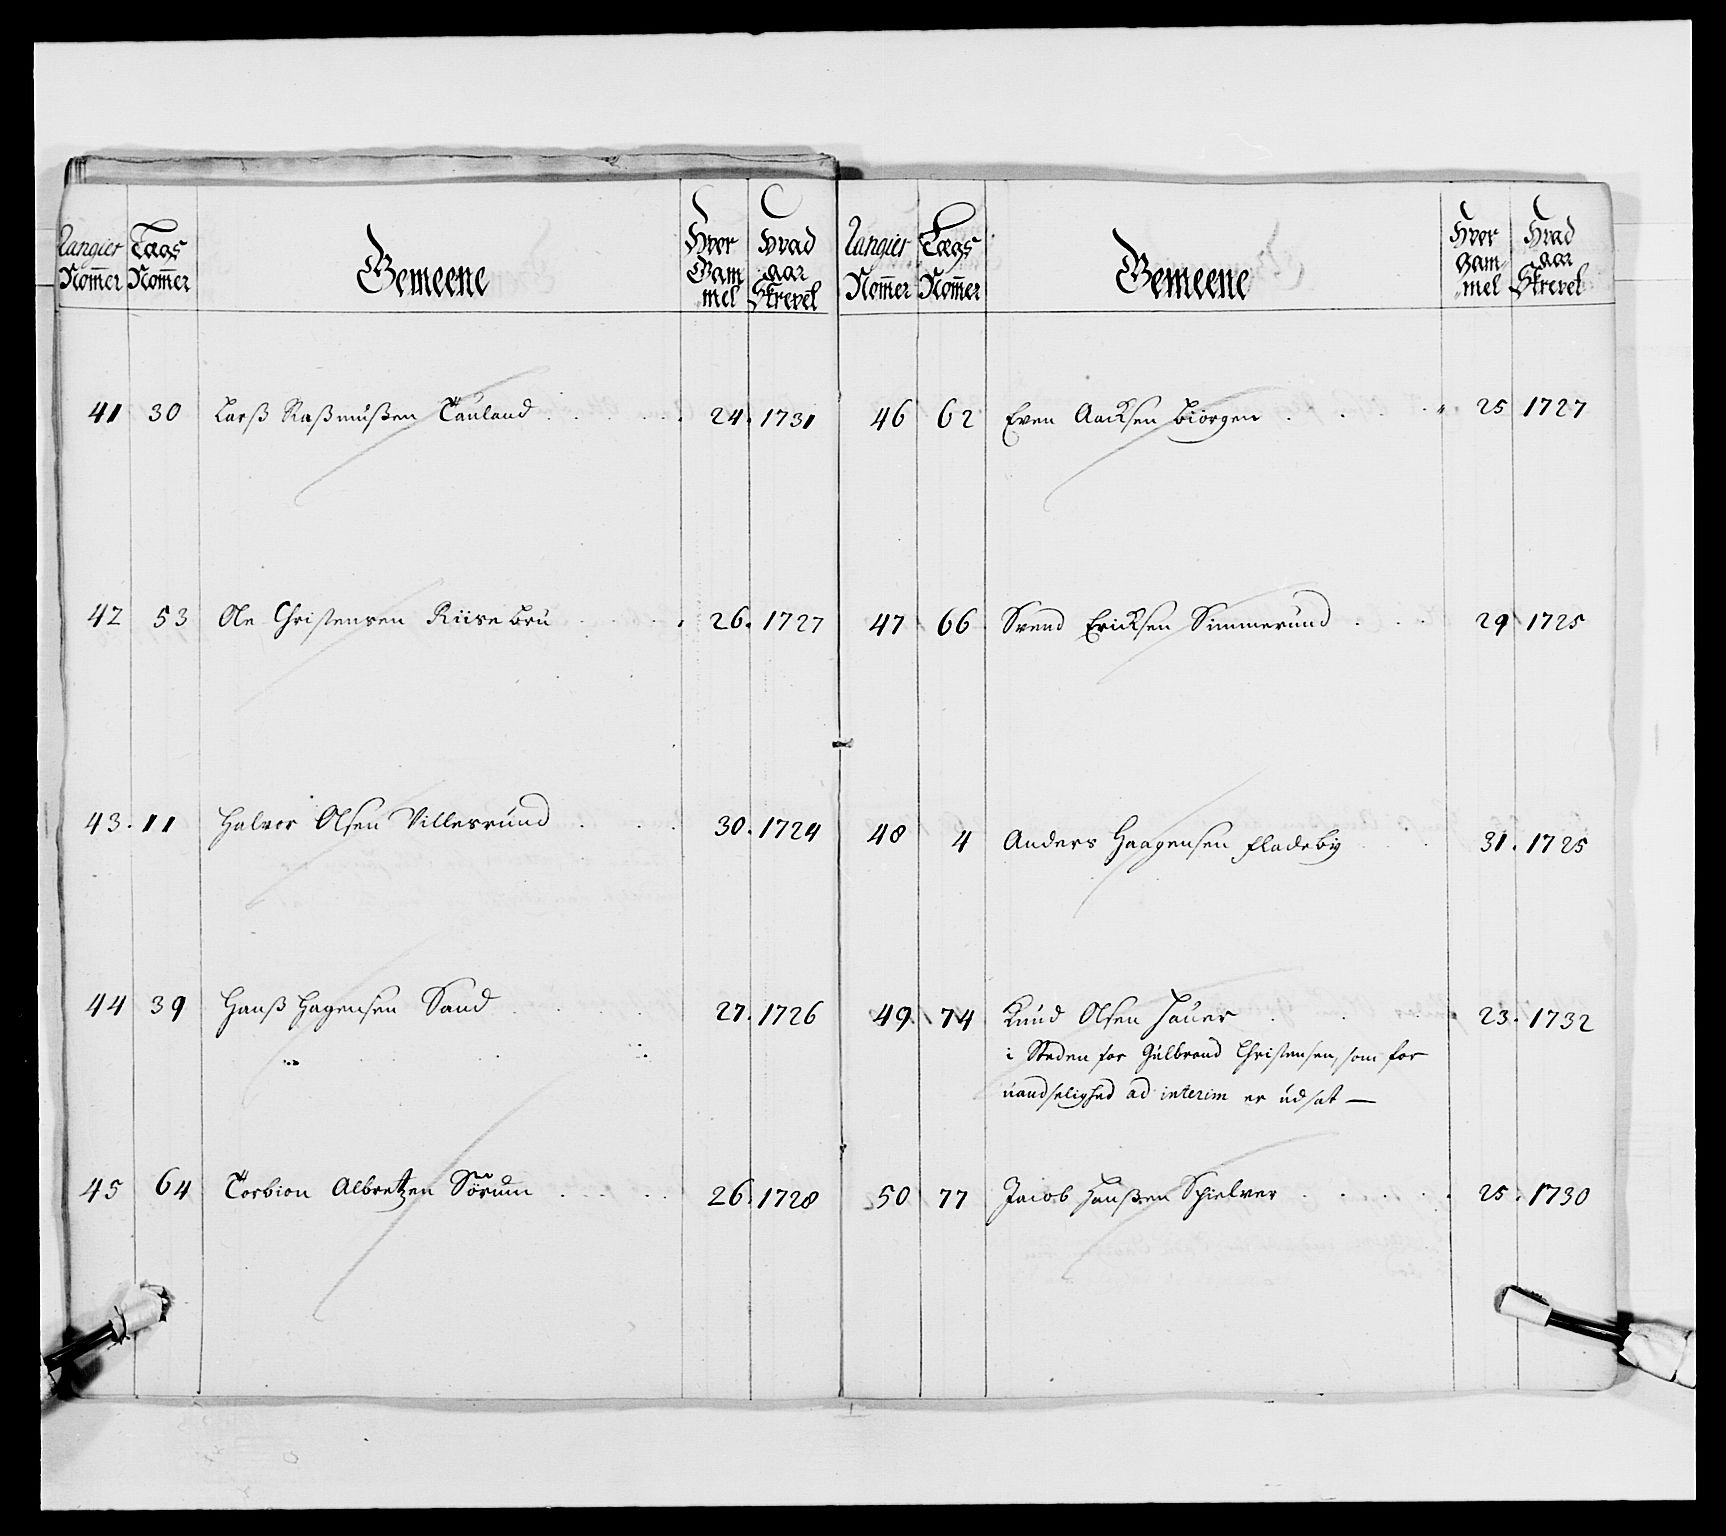 Rangier Nom̅er Lægs Nom̅er Gemeene Hvor Gammel Hvad aar Skrevet
41 30 Larß Raßmußen Tauland 24. 1731
42 53 Ole Christensen Riisebrú 26. 1727
43. 11 Halvor Olsen Villersrund 30. 1724
44 39 Hanß Hagensen Sand 27. 1726
45 64 Torbion Albretzen Sörum 26. 1728
Rangier Nom̅er Lægs Nom̅er Gemeene Hvor Gammel Hvad aar Skrevet
46 62 Even Aacksen Biorgen 25 1727
47 66 Svend Ericksen Simmerund 29 1725
48 4 Anders Haagensen Fladeby 31. 1725
49 74 Knud Olsen Hauer 23. 1732
i Steden for Gulbrand Christensen, som for
uandselighed ad interim er udsat —
50 77 Jacob Hanßen Schielver 25. 1730